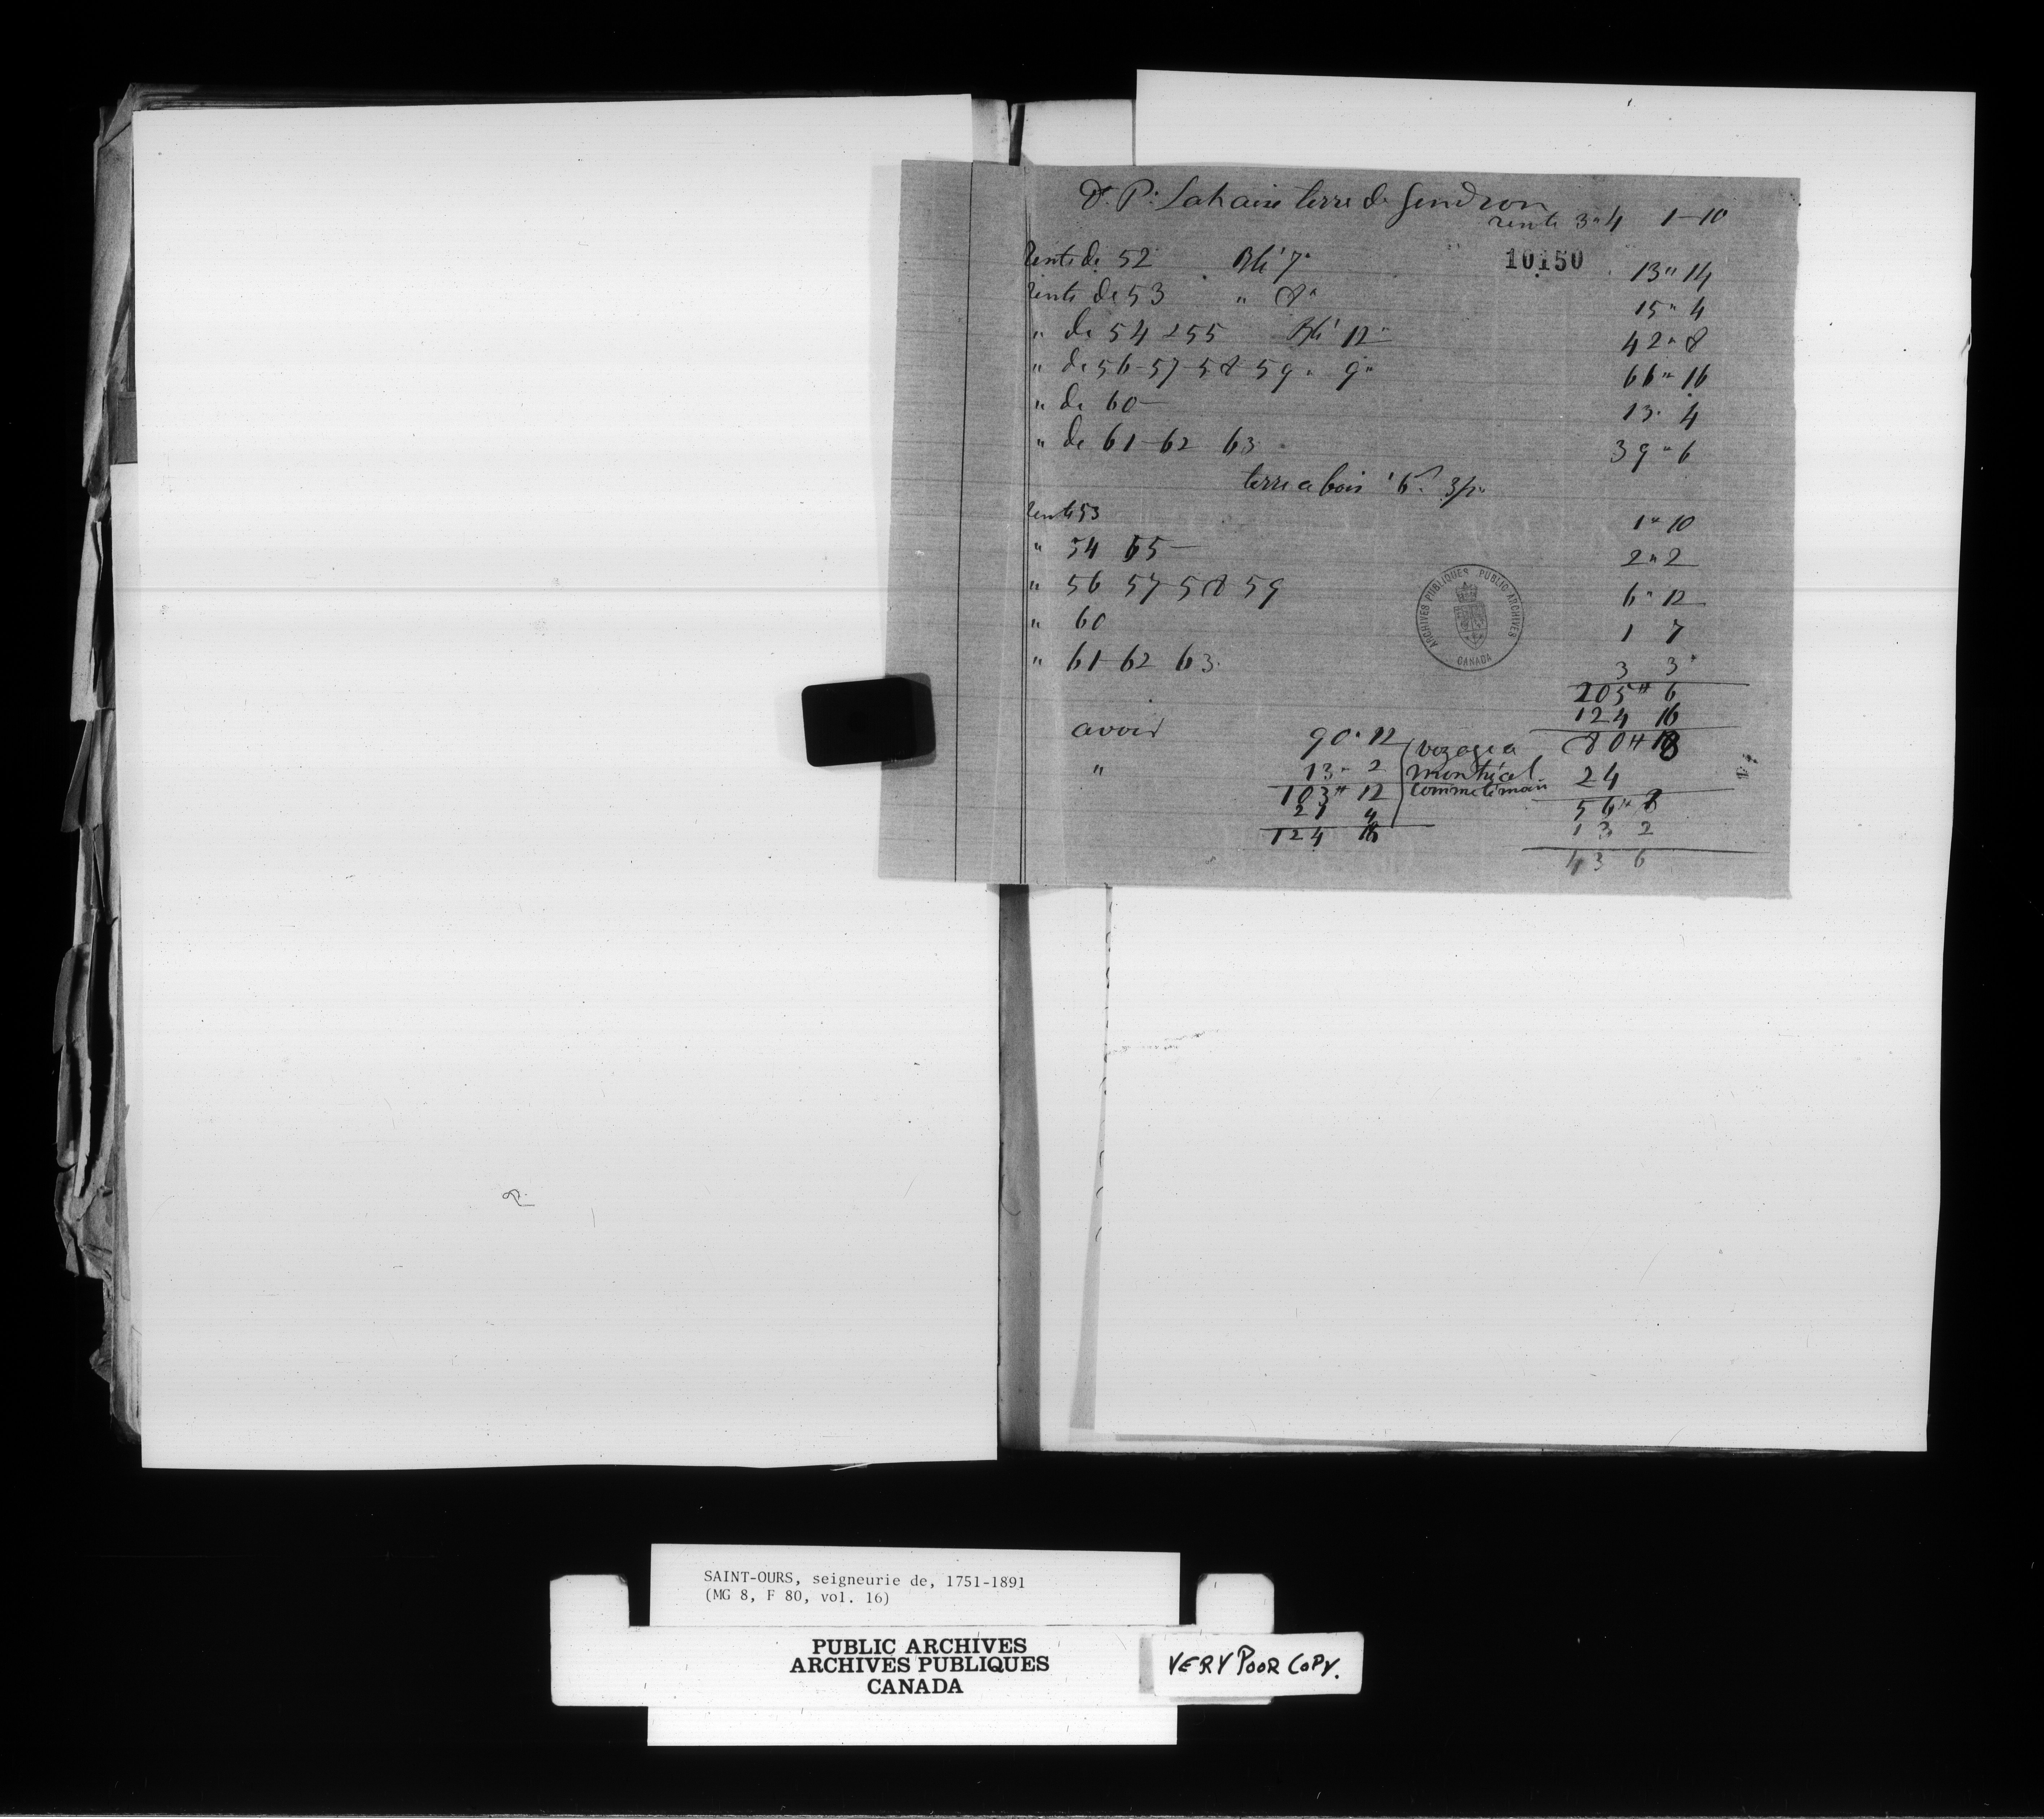 Dr. P. Lahaise terre de Gendron
rente 3" 4 1-10
10150
Rente de 52 Blé 7" 13" 14
rente de 53 " 8" 15" 4
" de 54 & 55 Blé 12" 42" 8
" de 56-57-58-59 " 9" 66" 16
" de 60 13" 4
" de 61-62 63 39" 6
terre a bois 6
rente 53 1" 10
" 54 55 2" 2
" 56 57-58-59 6" 12
" 60 1 7
" 61-62 63. 3 3
205" 6
124 16
avoir 90" 12 voyage a 80" 18
" 13" 2 montréal 24
103" 12 comme témoin 56"
21 4 13 2
124 16 43 6
ARCHIVES PUBLIQUES PUBLIC ARCHIVES
CANADA
SAINT-OURS, seigneurie de, 1751-1891
(MG 8, F 80, vol. 16)
PUBLIC ARCHIVES
ARCHIVES PUBLIQUES
CANADA
VERY POOR COPY.